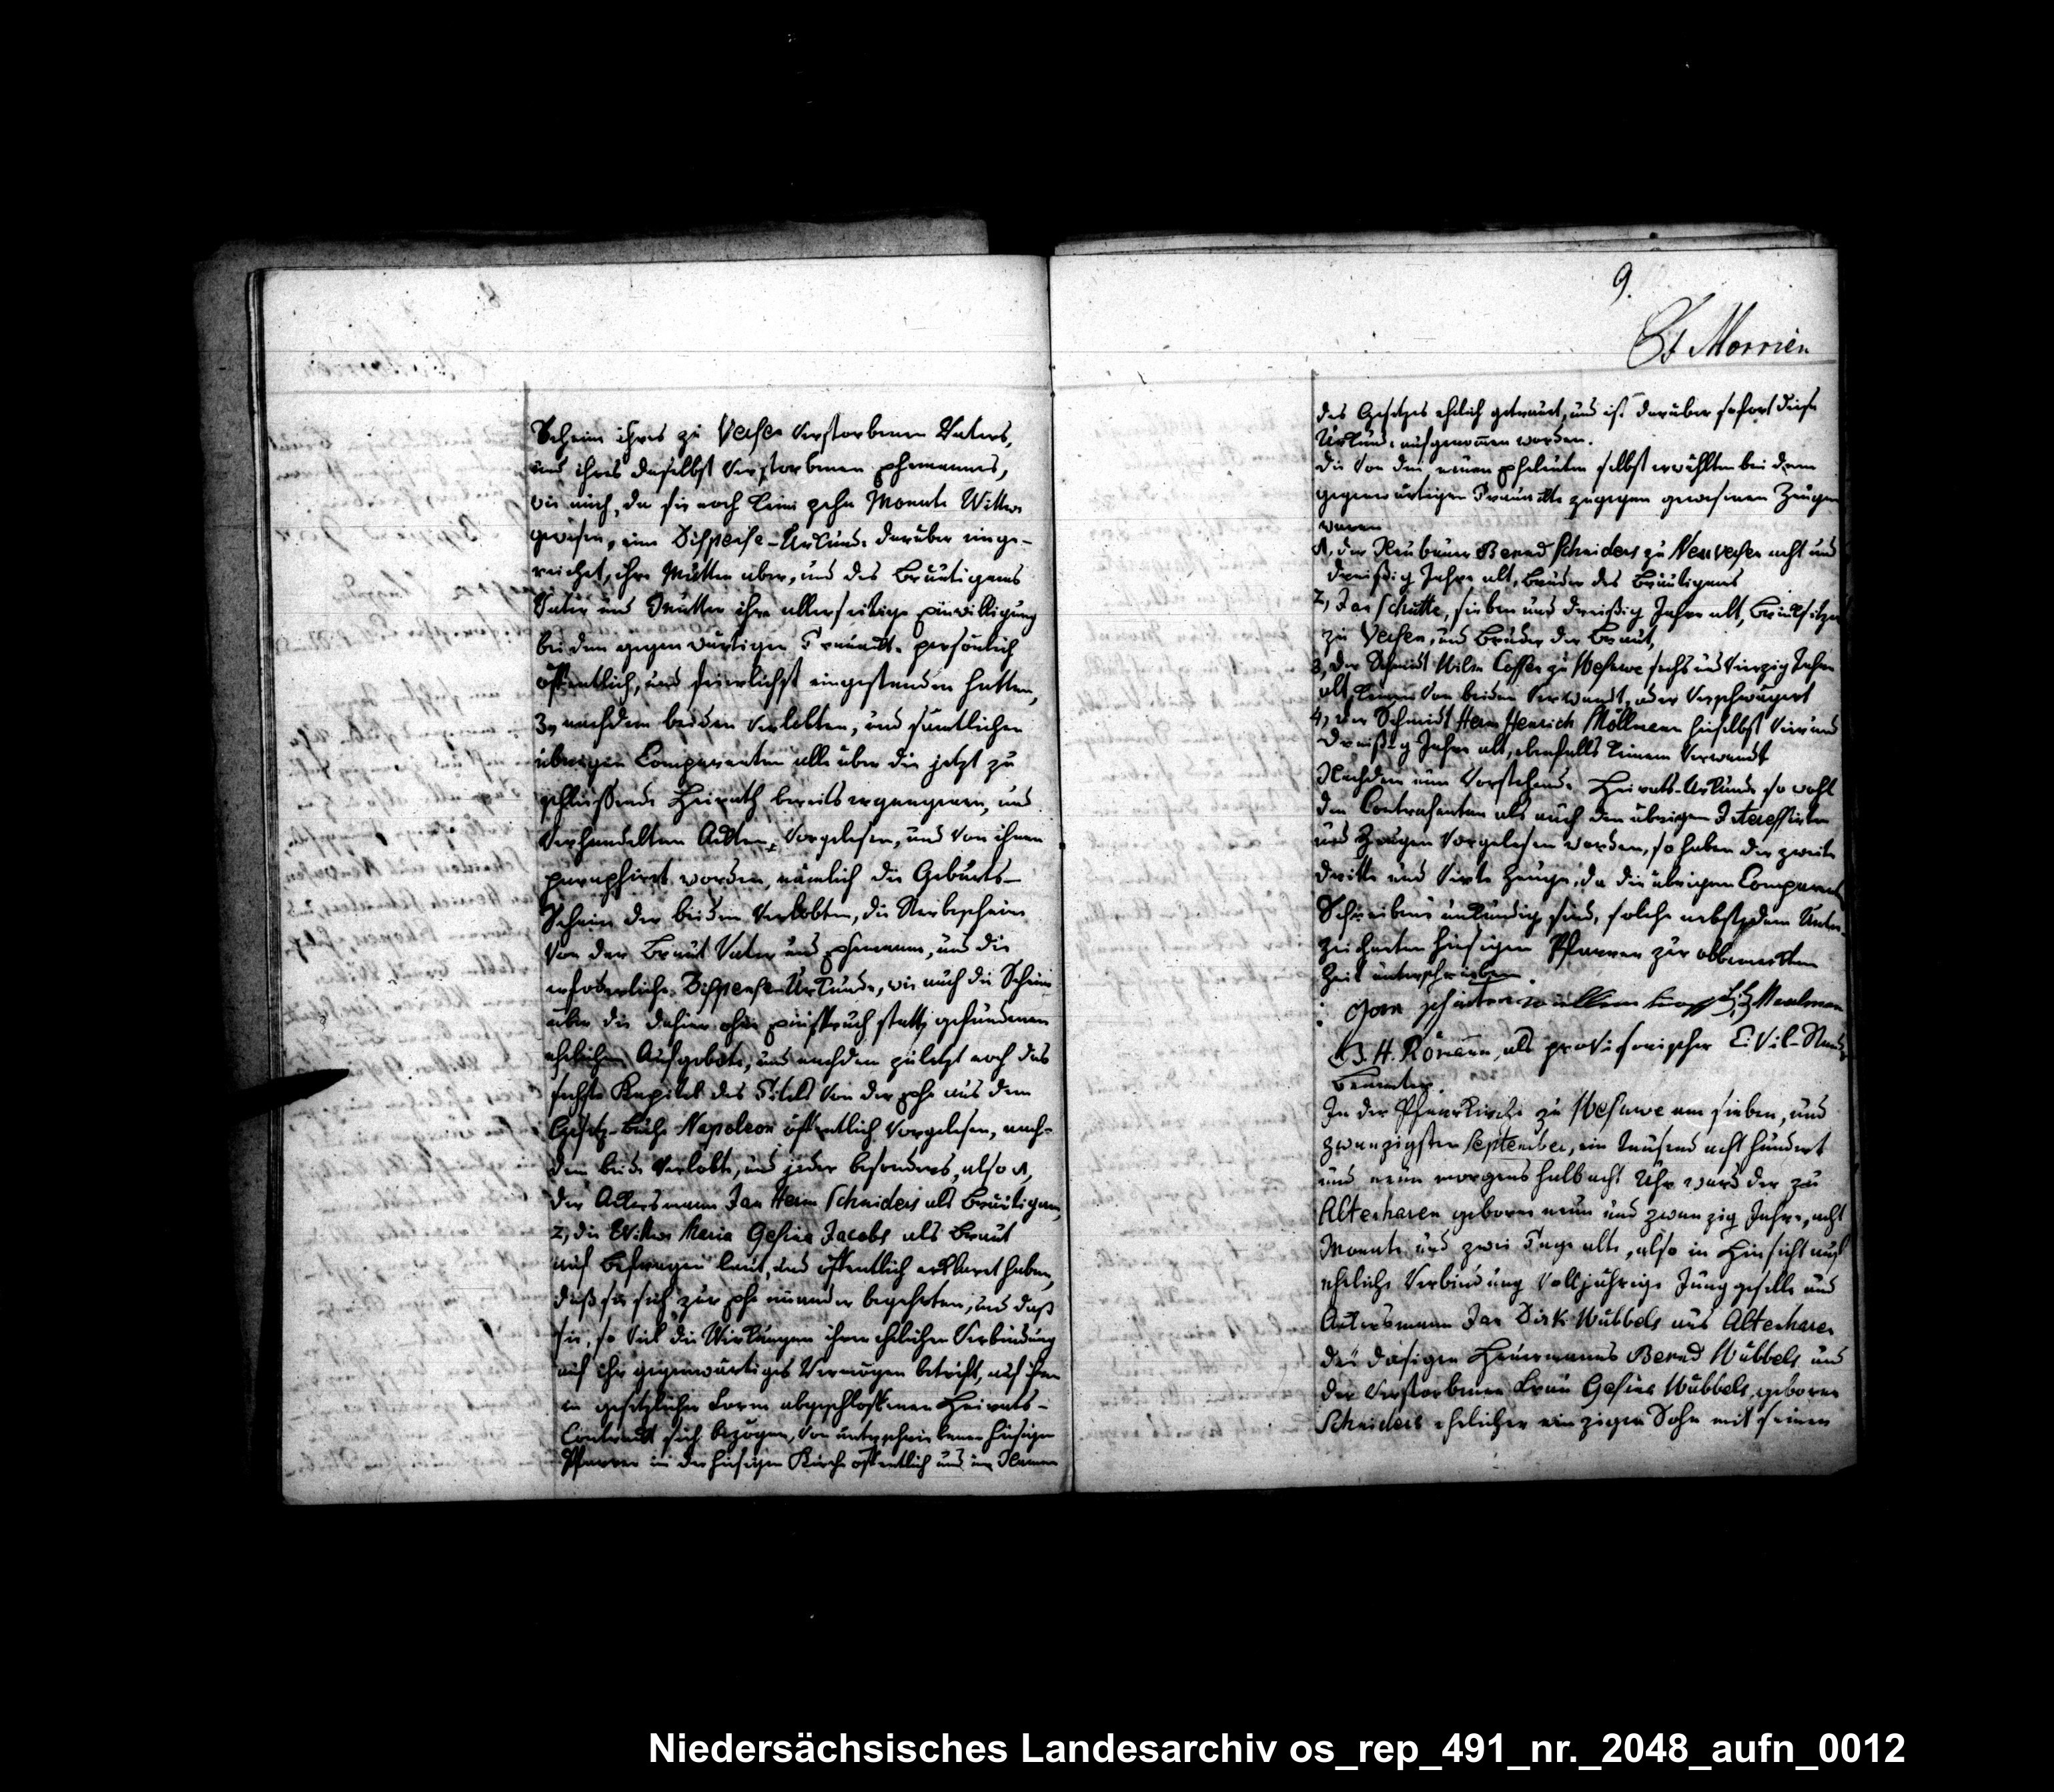 Schein ihres zu Versen verstorbenen Vaters,
und ihres daselbst verstorbenen Ehemannes,
wie auch, da sie noch keine zehn Monate Wittwe
gewesen, eine Dispense-Urkunde darüber einge-
reichet, ihre Mutter aber, und des Bräutigams
Vater und Mutter ihre allerseitige Einwilligung
bei dem gegenwärtigen Trauackte persönlich
öffentlich, und feierlichst eingestanden hatten,
3, nachdem beiden Verlobten, und sämtlichen
übrigen Comparenten alle über die jetzt zu
schliessende Heirath bereits ergangenen, und
verhandelten Ackten, vorgelesen, und von ihnen
paraphirt worden, nämlich die Geburts-
Schein der beiden Verlobten, die Sterbescheine
von der Braut Vater und Ehemann, und die
erfoderliche Dispense-Urkunde, wie auch die Scheine
über die dahier ohne Einspruch statt gefundenen
ehelichen Aufgebote, und nachdem zuletzt noch das
sechste Kapitel des Titels von der Ehe aus dem
Gesetz-Buche Napoleon öffentlich vorgelesen, nach-
dem beide Verlobte, und jeder besonders, also 1,
der Ackersmann Jan Herm Schneiders als Bräutigam,
2, die Wittwe Maria Gesina Jacobs als Braut
auf Befragen laut, und öffentlich erklaret haben,
daß sie sich zur Ehe einander begehrten, und daß
sie, so viel die Wirkungen ihrer ehelichen Verbindung
auf ihr gegenwärtiges Vermögen betrift, auf ihren
in gesetzlicher Form abgeschlossenen Heirats-
Contrackt sich bezögen, von unterschriebenen hiesigen
Pfarrer in der hiesigen Kirche öffentlich und im Namen
9.
Morrien
des Gesetzes ehelich getrauet, und ist darüber sofort diese
Urkunde aufgenommen worden.
die von den neuen Eheleuten selbst erwählten bei dem
gegenwärtigen Trauackte zugegen gewesenen Zeugen
waren
1, der Neubauer Bernd Schneiders zu Neuversen acht und
dreißig Jahre alt, Bruder des Bräutigams
2, Jan Schutte, sieben und dreißig Jahre alt,
zu Versen, und Bruder der Braut,
3, der Schmidt Wilm zu Wesuwe sechs und vierzig Jahre
alt, keinem von beiden verwandt, oder verschwägert
4, der Schmidt Herm Henrich Möllmann hieselbst vier und
dreißig Jahre alt, ebenfalls keinem verwandt
Nachdem nun vorstehende Heirats-Urkunde so wohl
den Contrahenten als auch den übrigen Interessirten
und Zeugen vorgelesen worden, so haben der zweite
dritte und vierte Zeuge, da die übrigen Comparenten
Schreibens unkundig sind, solche nebst dem Unter-
zeichneten hiesigen Pfarrer zur obbemerkten
Zeit unterschrieben.
Jan schutte willem
B. H. Römann, als provisorischer Civil-Stands
Beamter.
In der Pfarrkirche zu Wesuwe am sieben, und
zwanzigsten September, ein tausend acht hundert
und neun morgens halb acht Uhr ward der zu
Altenharen geboren neun und zwanzig Jahre, acht
Monate und zwei Tage alte, also in Hinsicht auf
eheliche Verbindung volljährige Junggeselle und
Ackersmann Jan Dirk Wubbels aus Altenharen
des dasigen Heuermanns Bernd Wübbels und
der verstorbenen Frau Gesina Wubbels, geborne
Schneiders ehelicher einziger Sohn mit seinen
Niedersächsisches Landesarchiv os_rep_491_nr._2048_aufn_0012